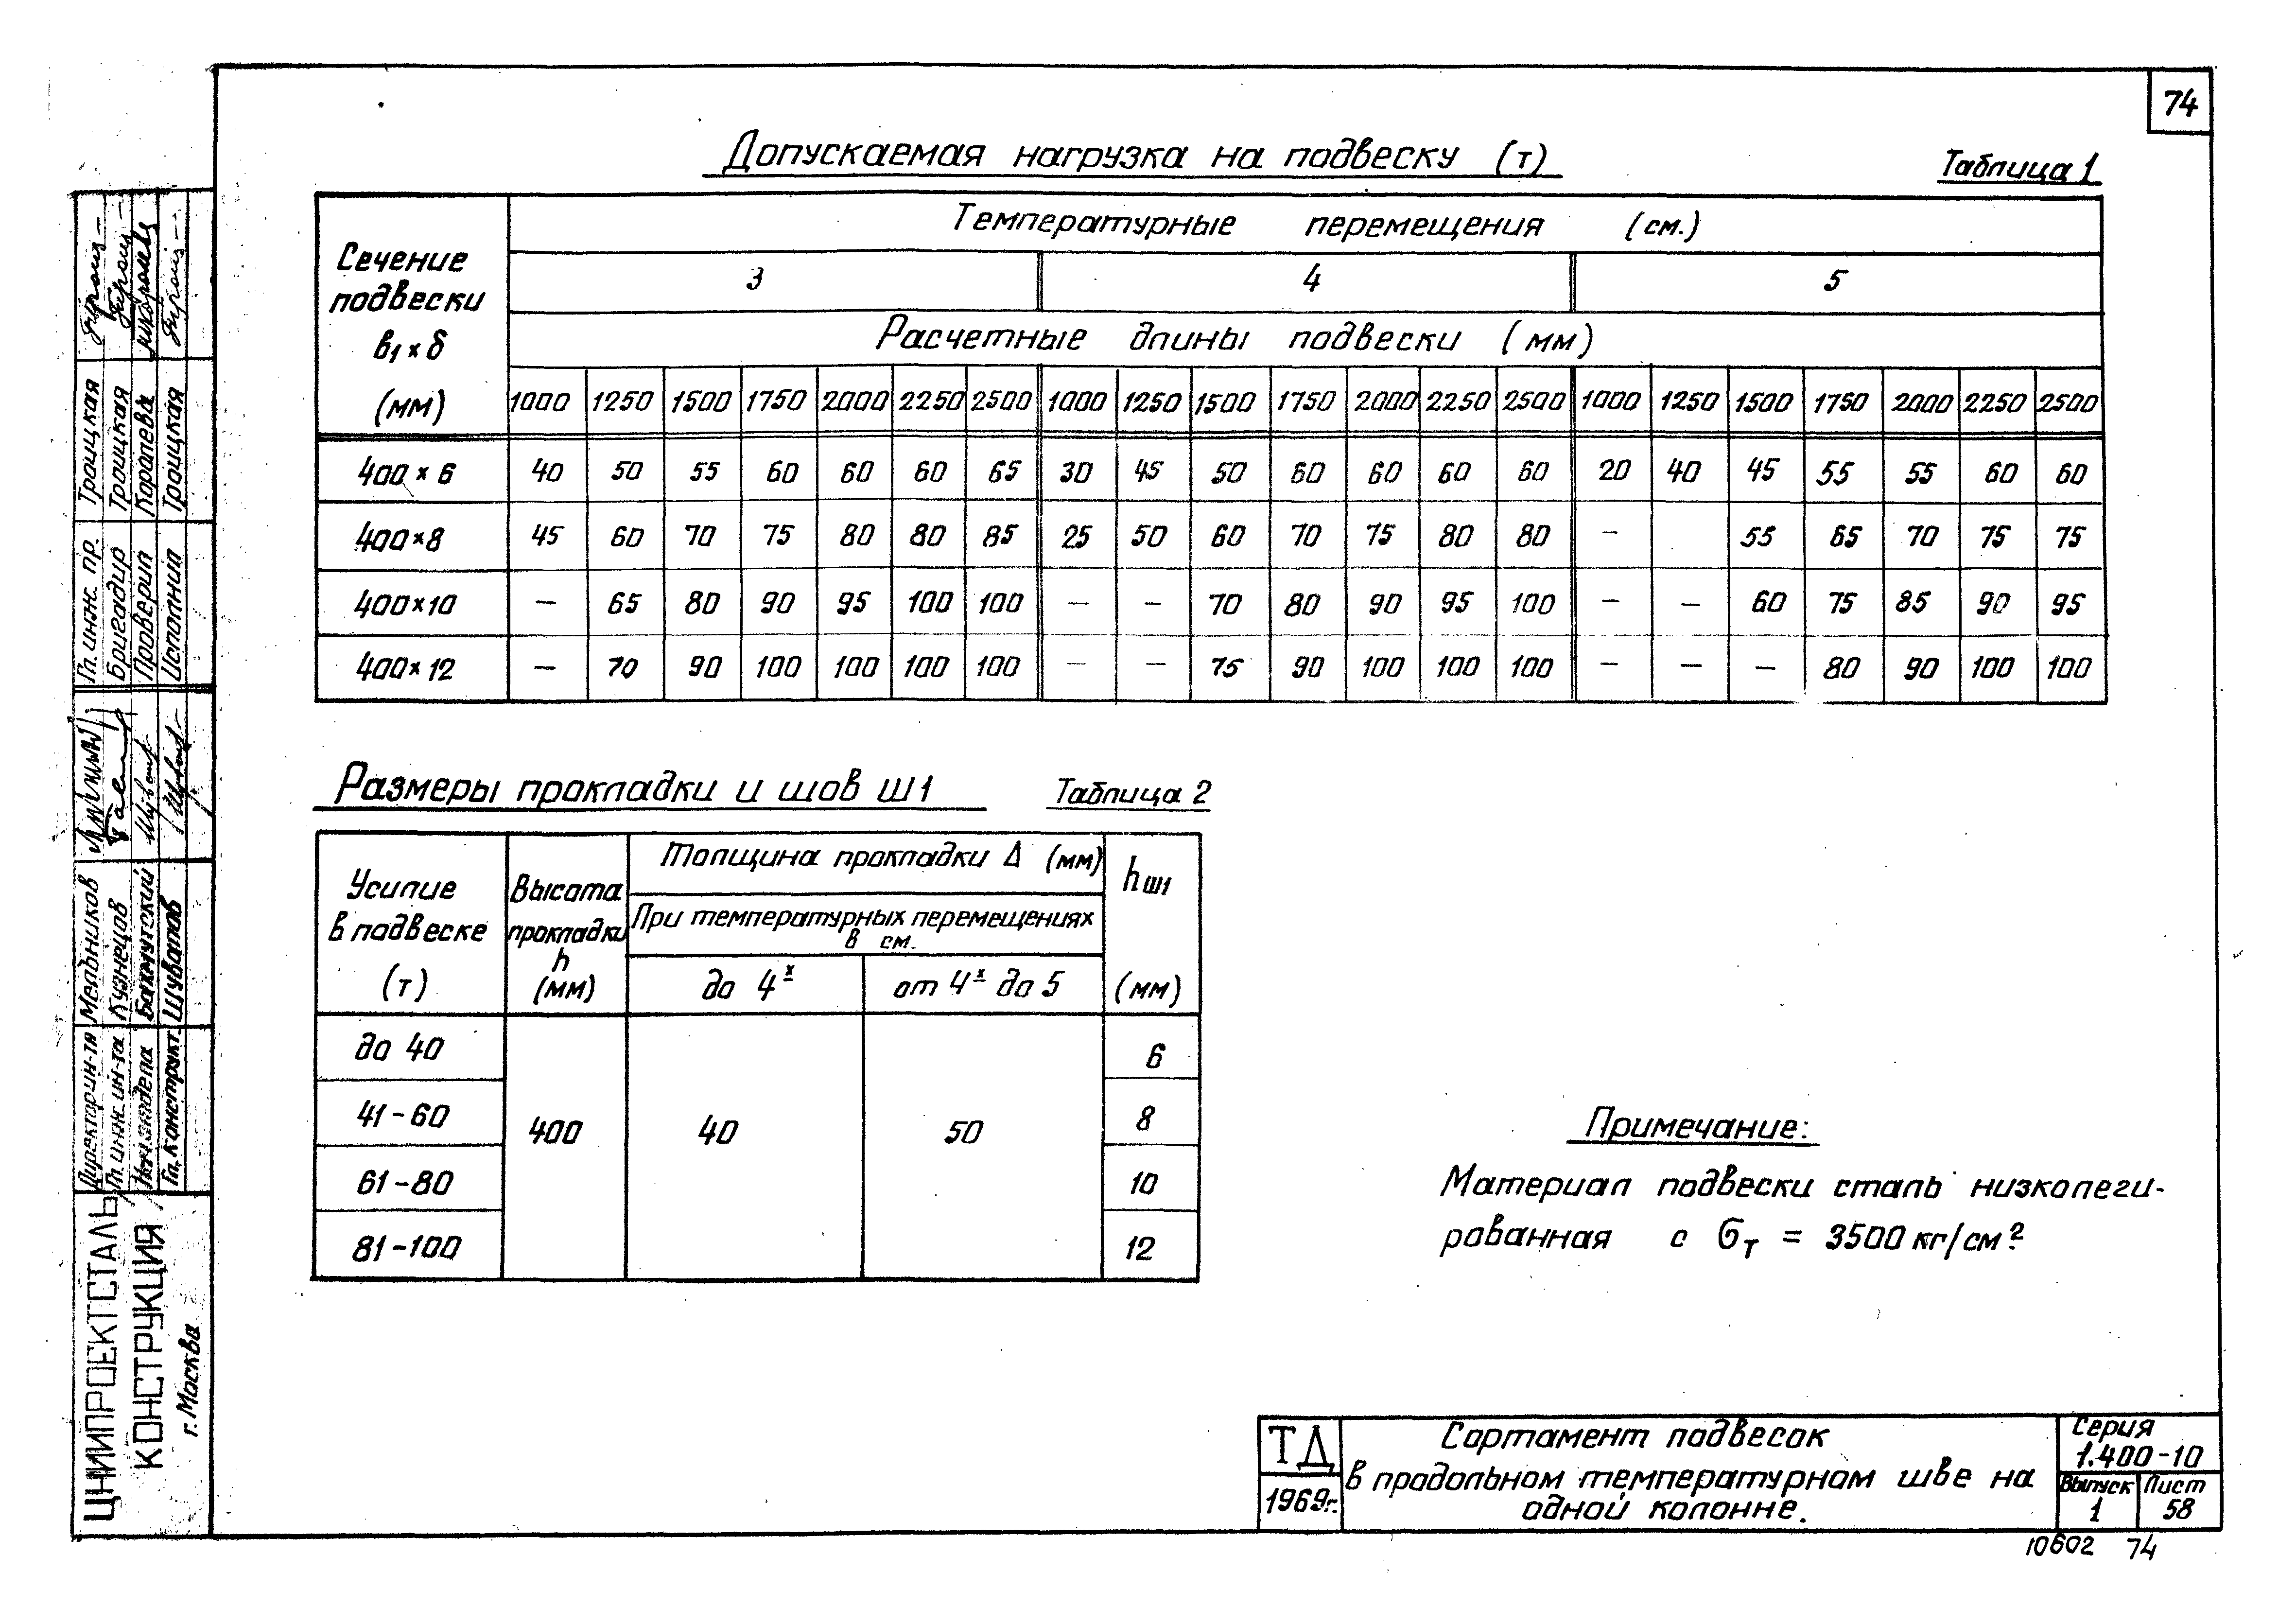 74
Допускаемая нагрузка на подвеску (т)
Таблица 1
Сечение подвески в₁ х δ (мм)
Температурные перемещения (см.)
3 4 5
Расчетные длины подвески (мм)
1000 1250 1500 1750 2000 2250 2500 1000 1250 1500 1750 2000 2250 2500 1000 1250 1500 1750 2000 2250 2500
400 х 6 40 50 55 60 60 60 65 30 45 50 60 60 60 60 20 40 45 55 55 60 60
400 х 8 45 60 70 75 80 80 85 25 50 60 70 75 80 80 – 55 65 70 75 75
400 х 10 – 65 80 90 95 100 100 – – 70 80 90 95 100 – – 60 75 85 90 95
400 х 12 – 70 90 100 100 100 100 – – 75 90 100 100 100 – – – 80 90 100 100
Размеры прокладки и шов Ш1
Таблица 2
Усилие в подвеске (т)
Высота прокладки h (мм)
Толщина прокладки Δ (мм)
При температурных перемещениях в см.
до 4ˣ
от 4ˣ до 5
hш1 (мм)
до 40 6
41-60 8
400 40 50
61-80 10
81-100 12
Примечание:
Материал подвески сталь низколеги-
рованная с σт = 3500 кг/см²
ТД
1969г.
Сортамент подвесок
в продольном температурном шве на
одной колонне.
Серия
1.400-10
Выпуск
1
Лист
58
10602 74
Гл. инж. пр. Троицкая
Бригадир Троицкая
Проверил Карапева
Исполнил Троицкая
Директор ин-та Мельников
Гл. инж. ин-та Кузнецов
Нач. отдела Бахмутский
Гл. конструкт. Шувалов
ЦНИИПРОЕКТСТАЛЬ
КОНСТРУКЦИЯ
г. Москва